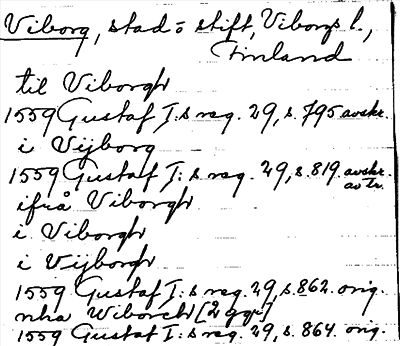 Viborg, stad o stift, Viborgs l.,
Finland
til Viborgh
1559 Gustaf I:s reg. 29, s. 795 avskr.
i Vijborg
1559 Gustaf I:s reg. 29, s. 819 avskr.
av tr.
ifrå Viborgh
i Viborgh
i Vijborgh
1559 Gustaf I:s reg. 29, s. 862. orig.
nha Wiborch [2 ggr]
1559 Gustaf I:s reg. 29, s. 864. orig.